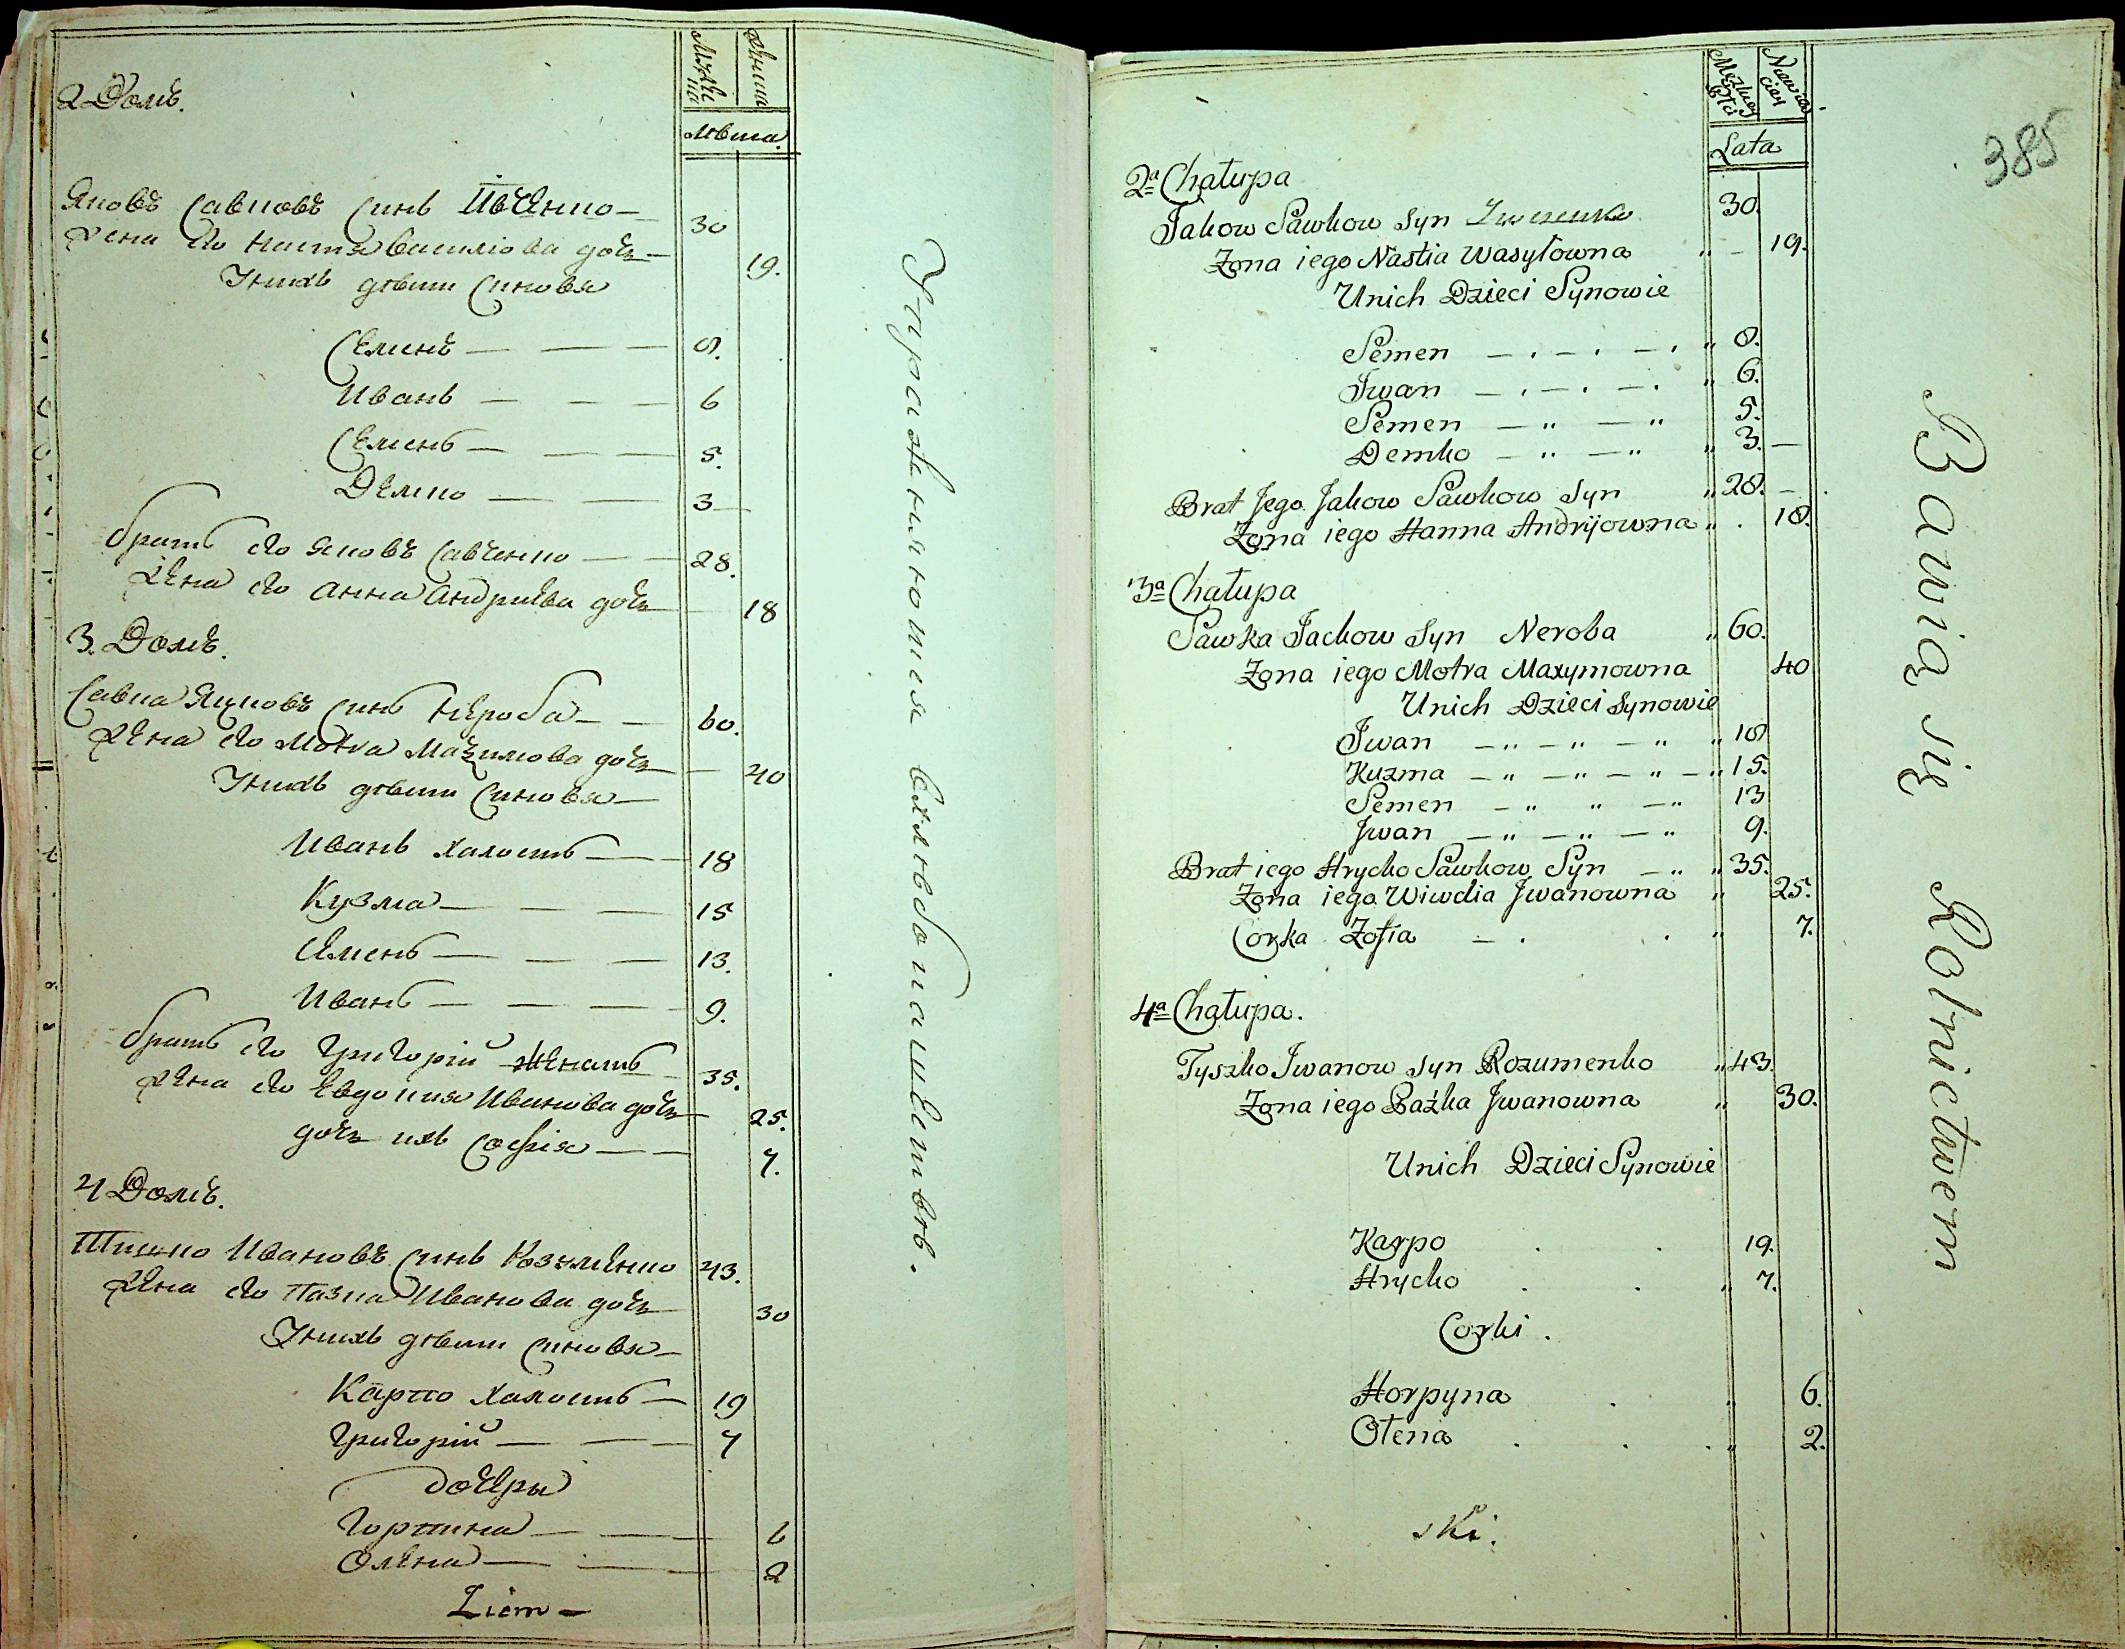 2 Домъ.
Мужеска
Женска
лѣта.
Яковъ Савковъ синъ Ивченко 30
жена его Настя Василіова дочь 19.
У нихъ дѣти синовя
Семенъ 8.
Иванъ 6
Семенъ 5.
Демко 3
братъ его Яковъ Савченко 28.
жена его Анна Андриева дочь 18
3. Домъ.
Савка Яцковъ синъ Нероба 60.
жена его Мотра Максимова дочь 40
У нихъ дѣти синовя
Иванъ холостъ 18
Кузма 15
Семенъ 13.
Иванъ 9.
братъ его Григорій женатъ 35.
жена его Евдокия Иванова дочь 25.
дочь ихъ Софія 7.
4 Домъ.
Тишко Ивановъ синъ Розуменко 43.
жена его Пазка Иванова дочь 30
У нихъ дѣти синовя
Карпо холостъ 19
Григорій 7
дочеры
Горпина 6
Олена 2
Ziem-
Упражняются в хлѣбопашествѣ.
385
Męzkiey Płci
Niewieściey
Lata
2a Chałupa
Jakow Sawkow Syn Iwczenko 30.
Żona iego Nastia Wasyłowna " - 19.
Unich Dzieci Synowie
Semen " 8.
Jwan " 6.
Semen 5.
Demko " 3.
Brat Jego Jakow Sawkow Syn " 28.
Żona iego Hanna Andrijowna " 18.
3a Chałupa
Sawka Jackow Syn Neroba " 60.
Żona iego Motra Maxymowna 40
Unich Dzieci Synowie
Jwan " 18
Kuzma " 15.
Semen 13
Jwan 9.
Brat iego Hrycko Sawkow Syn " 35.
Żona iego Wiwdia Jwanowna " 25.
Corka Zofia " 7.
4a Chałupa.
Tyszko Jwanow Syn Rozumenko " 43.
Żona iego Paźka Jwanowna " 30.
Unich Dzieci Synowie
Karpo 19.
Hrycko " 7.
Corki.
Horpyna " 6.
Ołena " 2.
ski.
Bawią się Rolnictwem